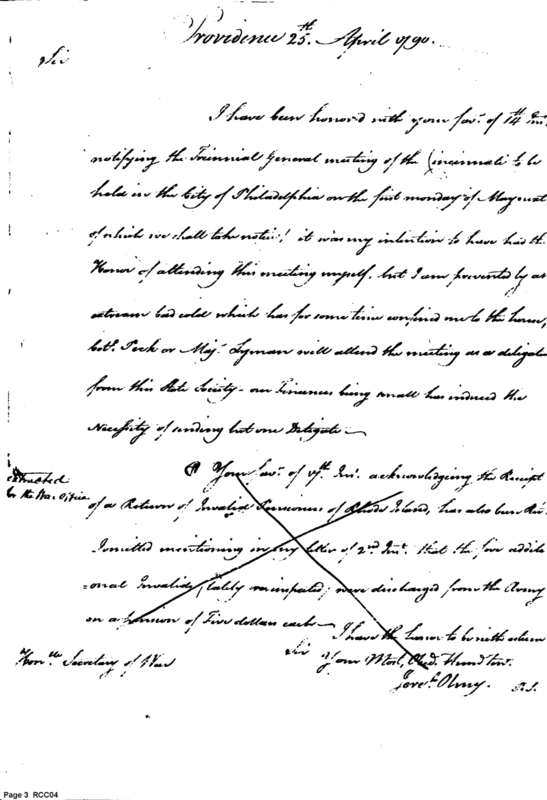 Providence 25th. April 1790.
Sir
I have been honor'd with your favr. of 14th Inst.
notifying the Triennial General meeting of the Cincinnati to be
held in the City of Philadelphia on the first monday of May next
of which we shall take notice! it was my intention to have had the
Honor of attending this meeting myself. but I am prevented by an
extream bad cold which has for some time confined me to the house,
Colo. Peck or Majr. Lyman will attend the meeting as a delegate
from this State Society - our Finances being small has induced the
Necessity of sending but one Delegate -
extracted
for the War Office
Your favr. of Inst. acknowledging the Receipt
of a Return of Invalid Pensioners of Rhode Island, has also been Recd.
I omitted mentioning in my letter of 2nd Inst. that the five addit
=onal Invalids, lately were discharged from the Army
on a pension of Five dollars each -
I have the honor to be with esteem
Sir Your Most Obed. Humb Servt.
Honble Secretary of War
Jereh. Olney. P.S.
Page 3 RCC04